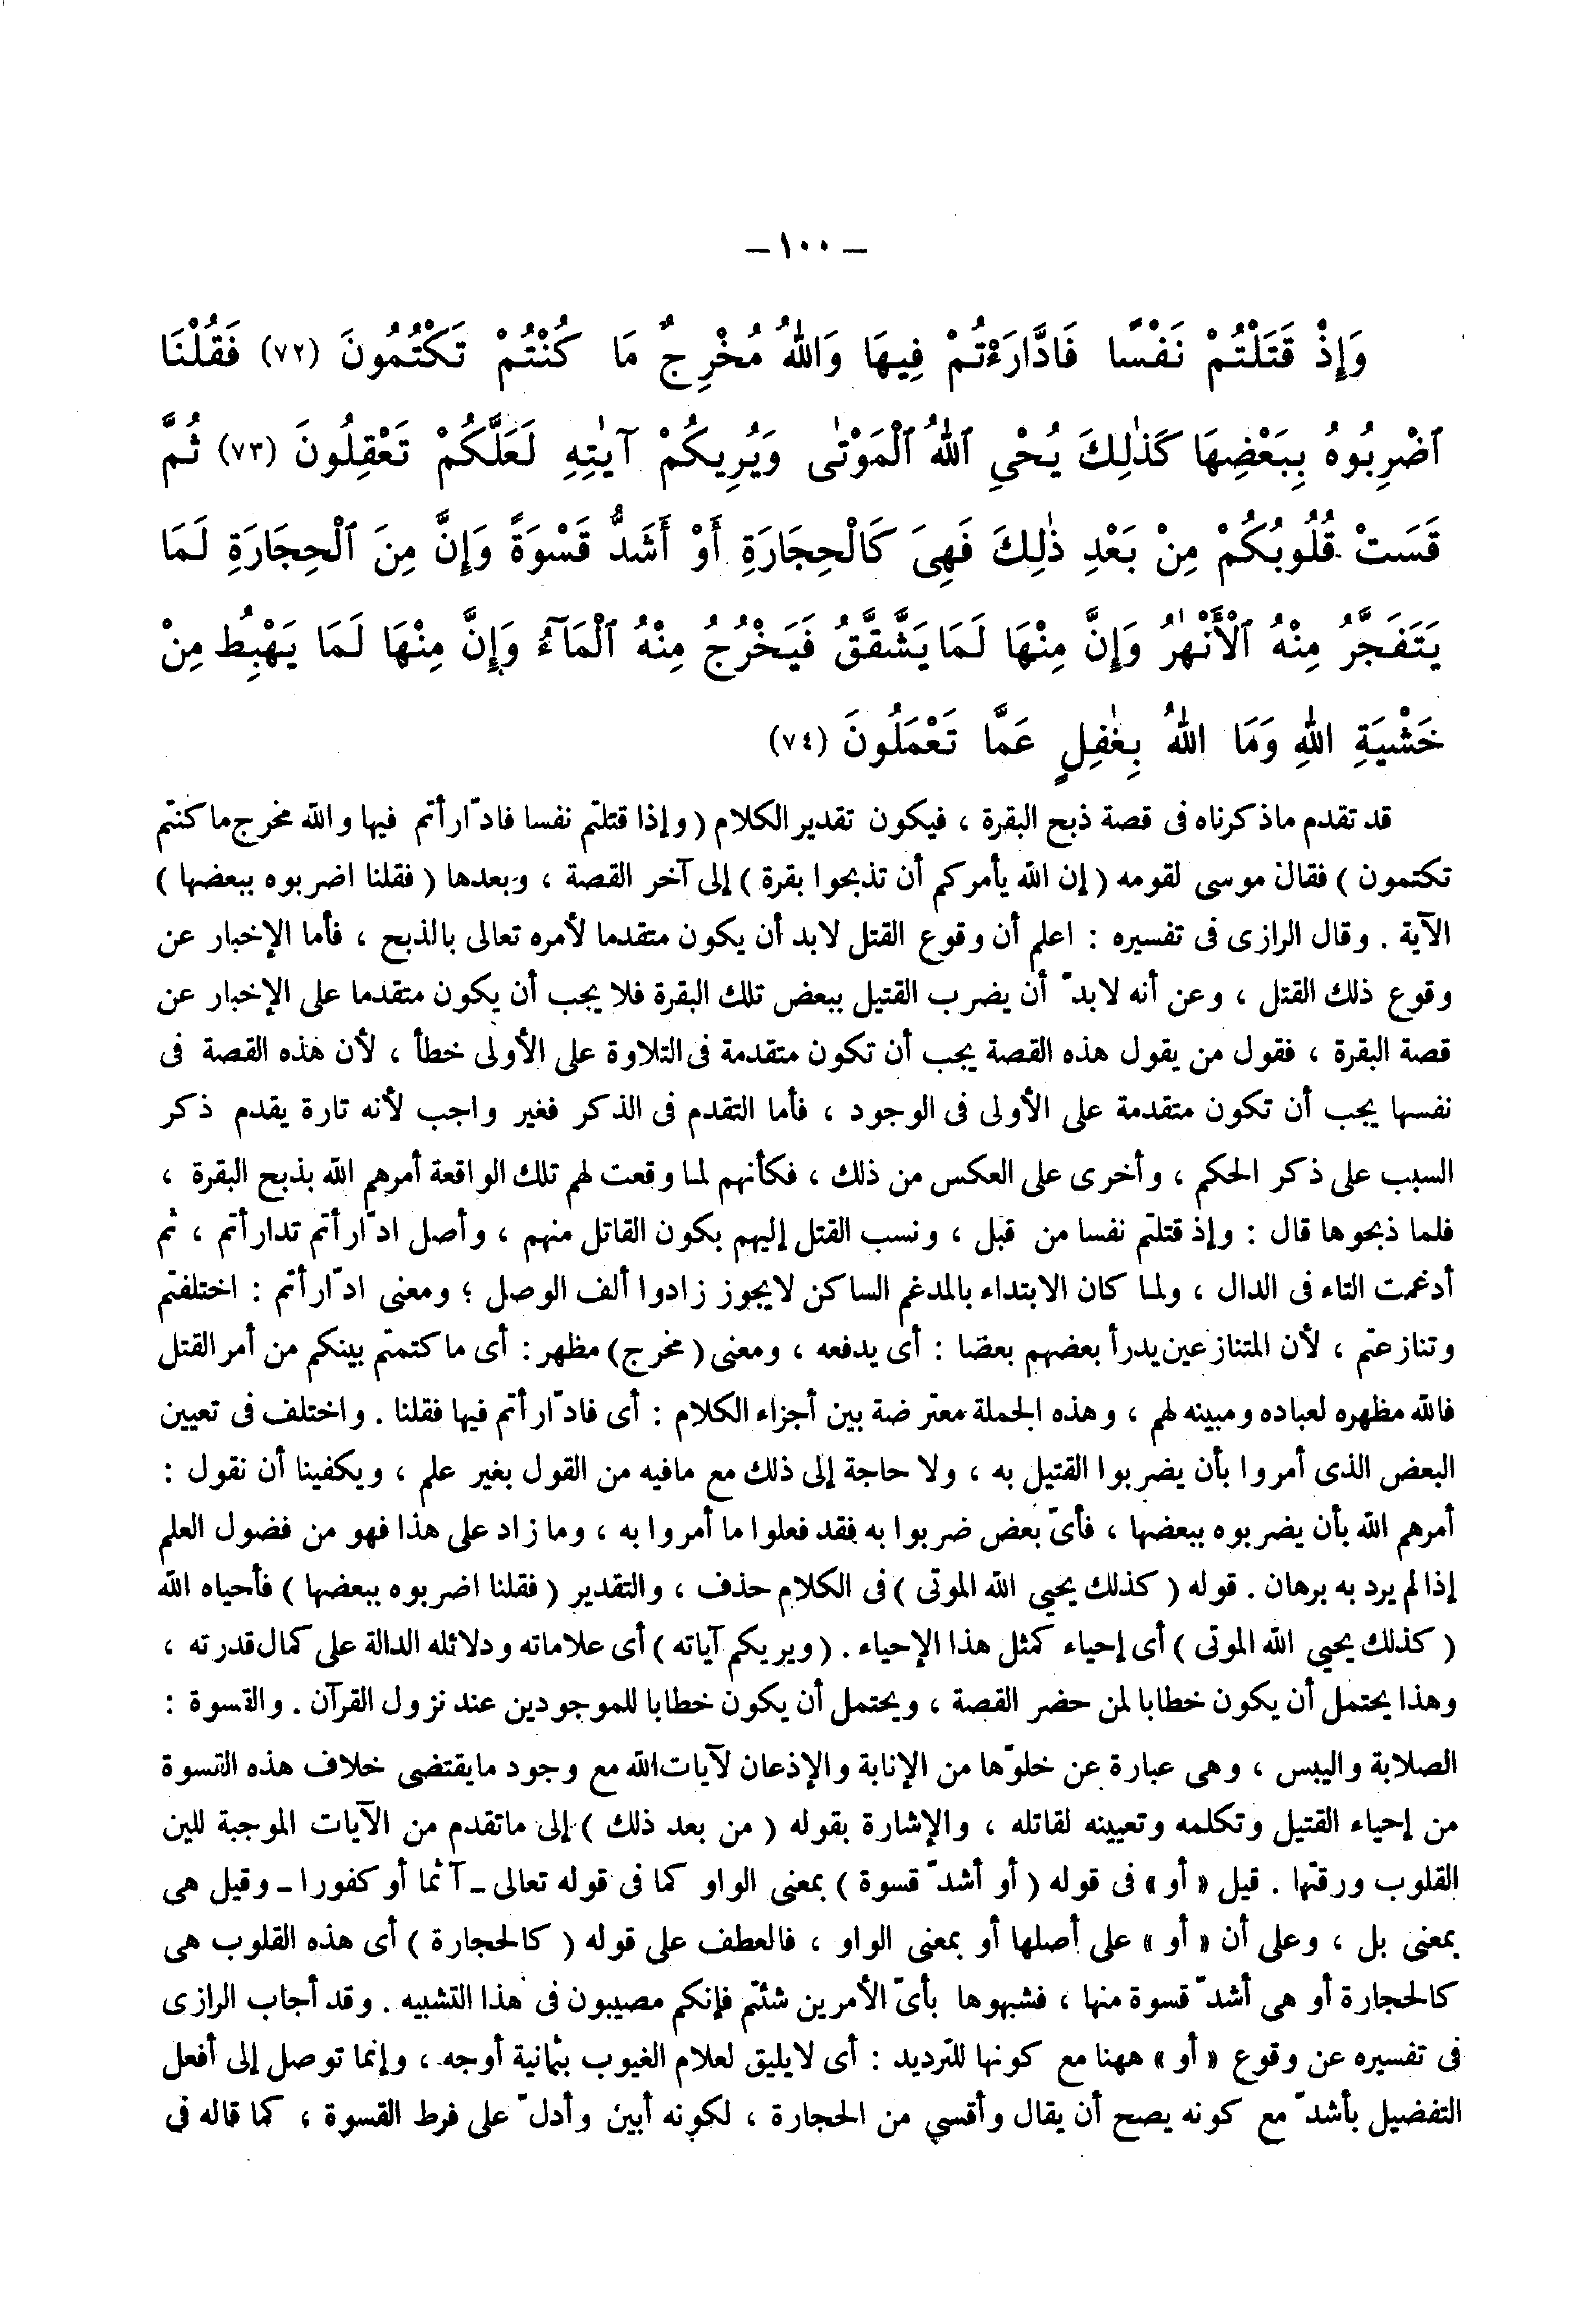 – ١٠٠ –
وَإِذْ قَتَلْتُمْ نَفْسًا فَادَّارَءْتُمْ فِيهَا وَاللهُ مُخْرِجٌ مَا كُنْتُمْ تَكْتُمُونَ (٧٢) فَقُلْنَا
ٱضْرِبُوهُ بِبَعْضِهَا كَذٰلِكَ يُحْيِ ٱللهُ ٱلْمَوْتٰى وَيُرِيكُمْ آيٰتِهِ لَعَلَّكُمْ تَعْقِلُونَ (٧٣) ثُمَّ
قَسَتْ قُلُوبُكُمْ مِنْ بَعْدِ ذٰلِكَ فَهِىَ كَالْحِجَارَةِ أَوْ أَشَدُّ قَسْوَةً وَإِنَّ مِنَ ٱلْحِجَارَةِ لَمَا
يَتَفَجَّرُ مِنْهُ ٱلْأَنْهٰرُ وَإِنَّ مِنْهَا لَمَا يَشَّقَّقُ فَيَخْرُجُ مِنْهُ ٱلْمَآءُ وَإِنَّ مِنْهَا لَمَا يَهْبِطُ مِنْ
خَشْيَةِ اللهِ وَمَا اللهُ بِغٰفِلٍ عَمَّا تَعْمَلُونَ (٧٤)
قد تقدم ماذكرناه فى قصة ذبح البقرة ، فيكون تقدير الكلام ( وإذا قتلتم نفسا فادّارأتم فيها والله مخرج ما كنتم
تكتمون ) فقال موسى لقومه ( إن الله يأمركم أن تذبحوا بقرة ) إلى آخر القصة ، وبعدها ( فقلنا اضربوه ببعضها )
الآية . وقال الرازى فى تفسيره : اعلم أن وقوع القتل لابد أن يكون متقدما لأمره تعالى بالذبح ، فأما الإخبار عن
وقوع ذلك القتل ، وعن أنه لابدّ أن يضرب القتيل ببعض تلك البقرة فلا يجب أن يكون متقدما على الإخبار عن
قصة البقرة ، فقول من يقول هذه القصة يجب أن تكون متقدمة فى التلاوة على الأولى خطأ ، لأن هذه القصة فى
نفسها يجب أن تكون متقدمة على الأولى فى الوجود ، فأما التقدم فى الذكر فغير واجب لأنه تارة يقدم ذكر
السبب على ذكر الحكم ، وأخرى على العكس من ذلك ، فكأنهم لما وقعت لهم تلك الواقعة أمرهم الله بذبح البقرة ،
فلما ذبحوها قال : وإذ قتلتم نفسا من قبل ، ونسب القتل إليهم بكون القاتل منهم ، وأصل ادّارأتم تدارأتم ، ثم
أدغمت التاء فى الدال ، ولما كان الابتداء بالمدغم الساكن لايجوز زادوا ألف الوصل ؛ ومعنى ادّارأتم : اختلفتم
وتنازعتم ، لأن المتنازعين يدرأ بعضهم بعضا : أى يدفعه ، ومعنى ( مخرج ) مظهر : أى ما كتمتم بينكم من أمر القتل
فالله مظهره لعباده ومبينه لهم ، وهذه الجملة معترضة بين أجزاء الكلام : أى فادّارأتم فيها فقلنا . واختلف فى تعيين
البعض الذى أمروا بأن يضربوا القتيل به ، ولا حاجة إلى ذلك مع مافيه من القول بغير علم ، ويكفينا أن نقول :
أمرهم الله بأن يضربوه ببعضها ، فأىّ بعض ضربوا به فقد فعلوا ما أمروا به ، وما زاد على هذا فهو من فضول العلم
إذا لم يرد به برهان . قوله ( كذلك يحيى الله الموتى ) فى الكلام حذف ، والتقدير ( فقلنا اضربوه ببعضها ) فأحياه الله
( كذلك يحيى الله الموتى ) أى إحياء كمثل هذا الإحياء . ( ويريكم آياته ) أى علاماته ودلائله الدالة على كمال قدرته ،
وهذا يحتمل أن يكون خطابا لمن حضر القصة ، ويحتمل أن يكون خطابا للموجودين عند نزول القرآن . والقسوة :
الصلابة واليبس ، وهى عبارة عن خلوّها من الإنابة والإذعان لآيات الله مع وجود مايقتضى خلاف هذه القسوة
من إحياء القتيل وتكلمه وتعيينه لقاتله ، والإشارة بقوله ( من بعد ذلك ) إلى ماتقدم من الآيات الموجبة للين
القلوب ورقتها . قيل « أو » فى قوله ( أو أشدّ قسوة ) بمعنى الواو كما فى قوله تعالى ـ آثما أو كفورا ـ وقيل هى
بمعنى بل ، وعلى أن « أو » على أصلها أو بمعنى الواو ، فالعطف على قوله ( كالحجارة ) أى هذه القلوب هى
كالحجارة أو هى أشدّ قسوة منها ، فشبهوها بأىّ الأمرين شئتم فإنكم مصيبون فى هذا التشبيه . وقد أجاب الرازى
فى تفسيره عن وقوع « أو » ههنا مع كونها للترديد : أى لايليق لعلام الغيوب بثمانية أوجه ، وإنما توصل إلى أفعل
التفضيل بأشدّ مع كونه يصح أن يقال وأقسى من الحجارة ، لكونه أبين وأدلّ على فرط القسوة ، كما قاله فى